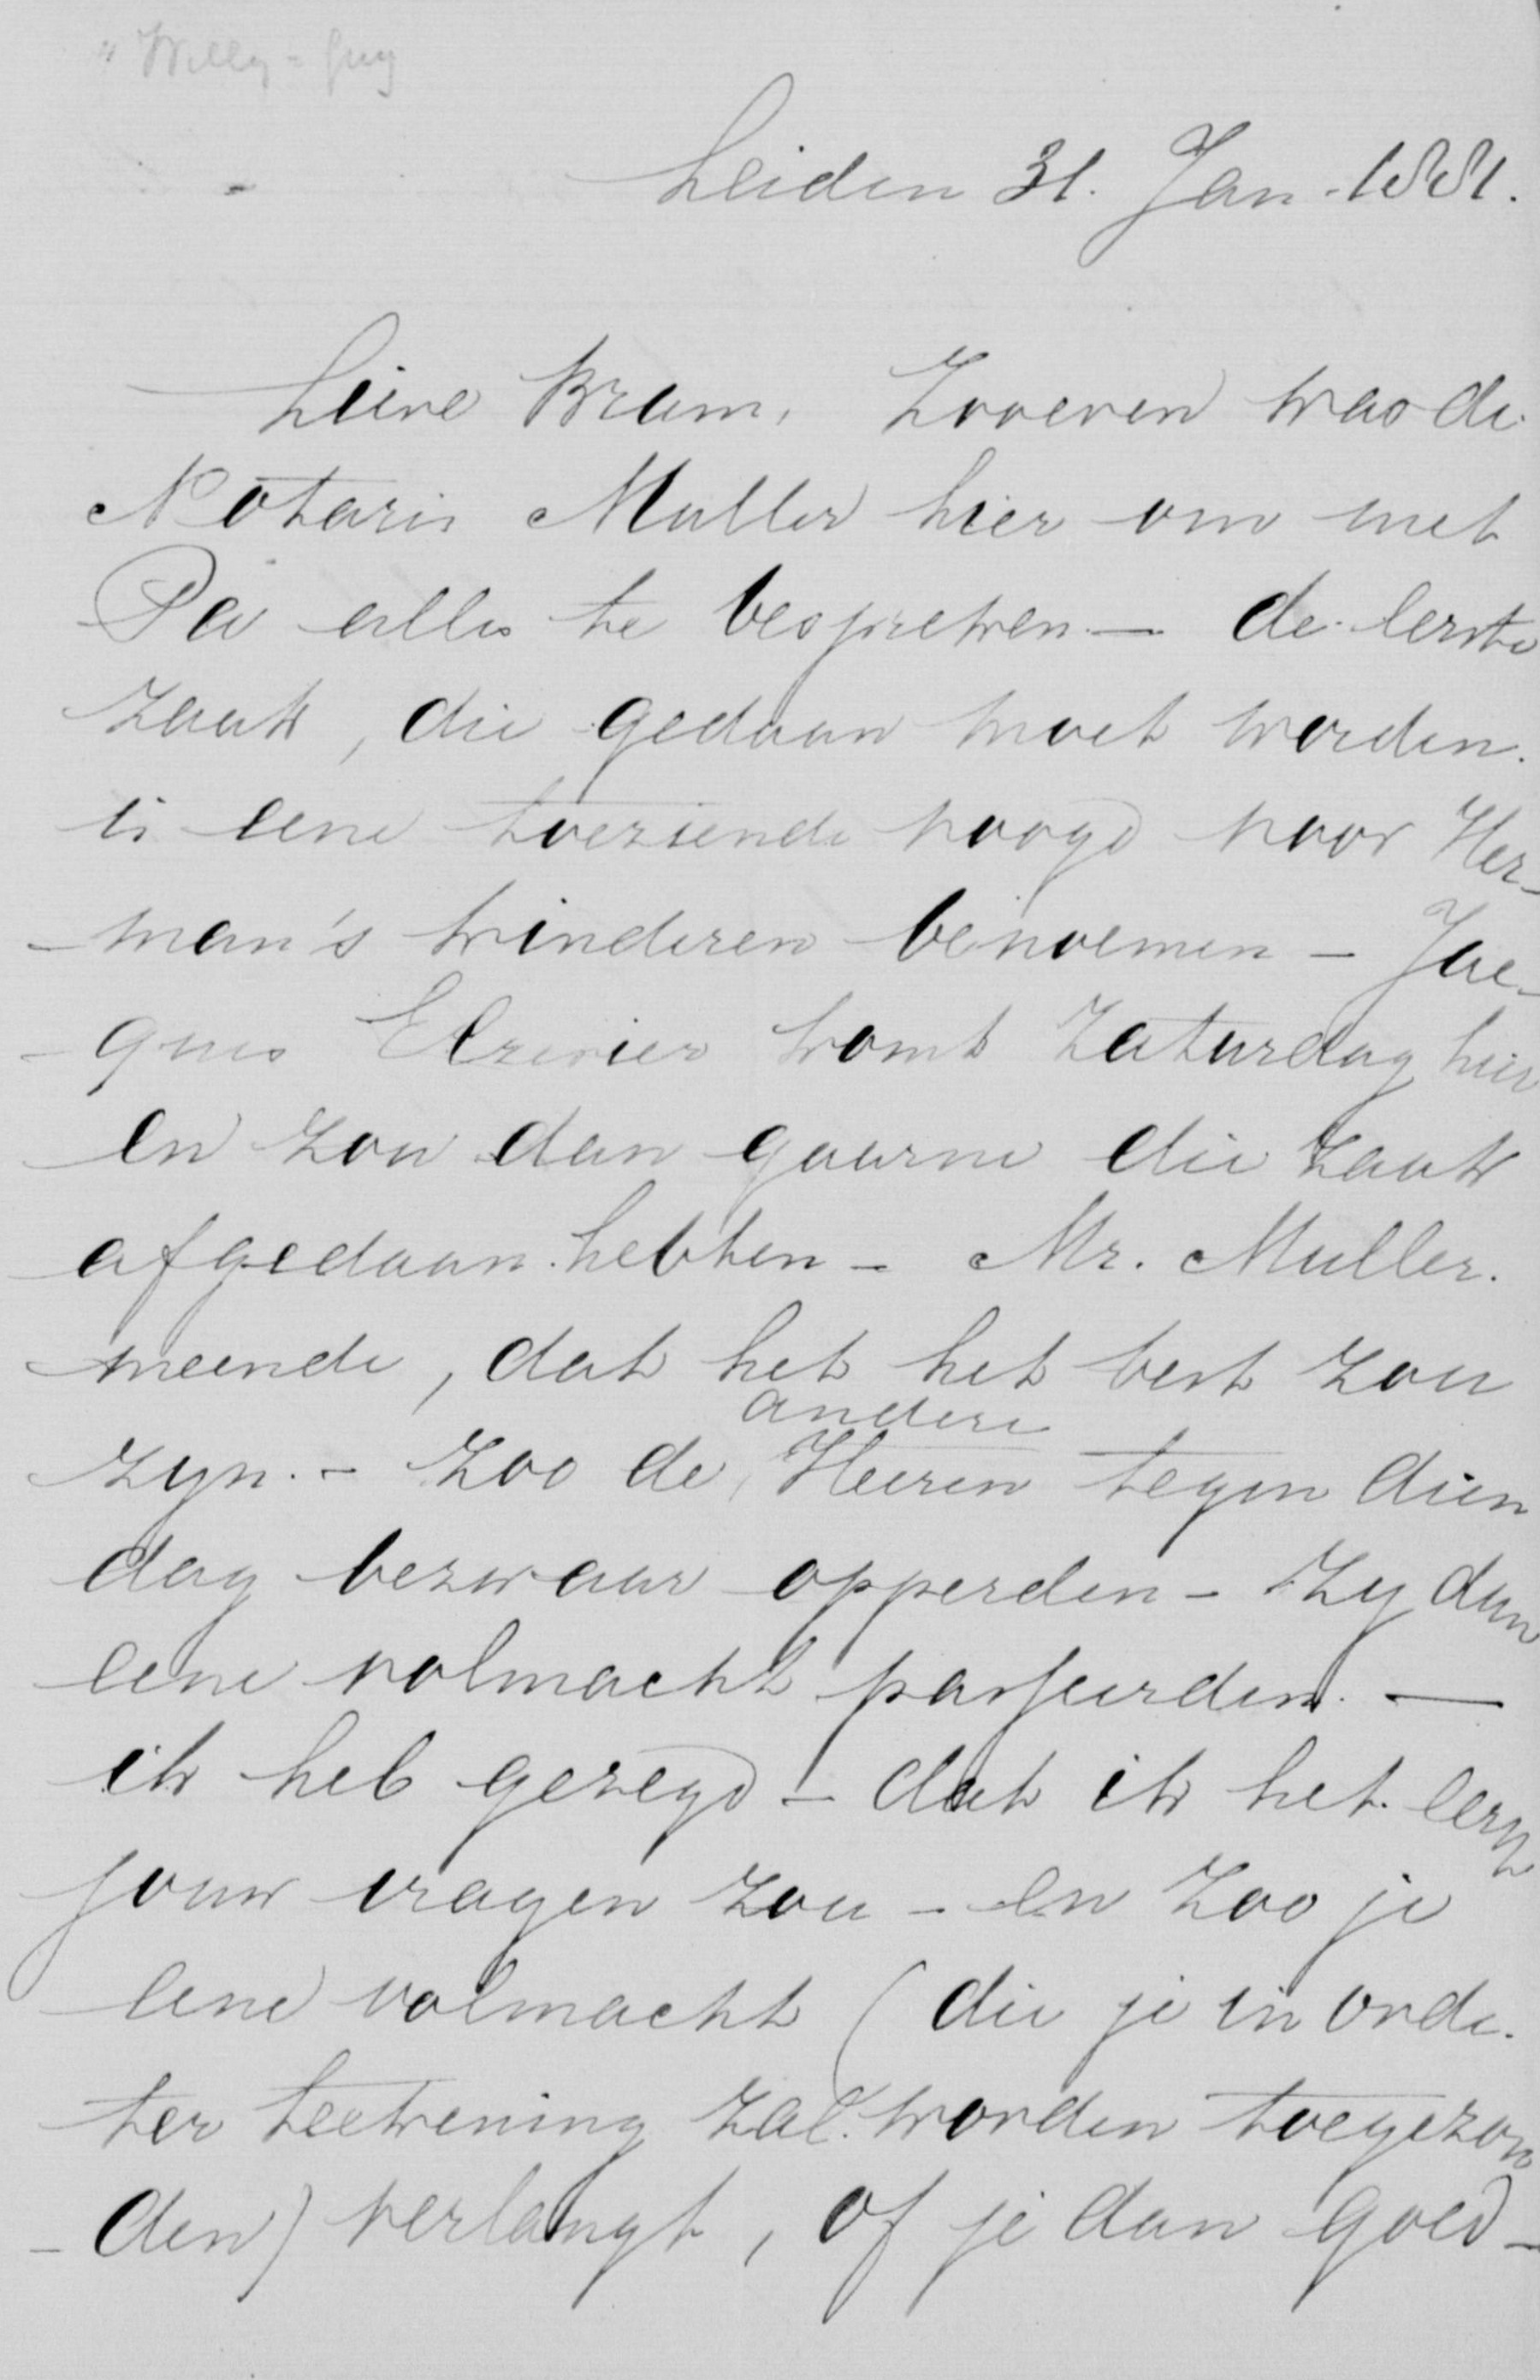 Leiden 31. Jan. 1881.
Lieve Bram, Zooeven was de
Notaris Muller hier om met
Pa alles te bespreken. — de eerste
zaak, die gedaan moet worden.
is eene toeziende voogd voor Her-
- man's kinderen benoemen - Jac-
- ques Elzevier komt Zaturdag hier
en zou dan gaarne die zaak
afgedaan hebben - Mr. Muller.
meende, dat het het best zou
zyn. - zoo de andere Heeren tegen dien
dag bezwaar opperden - zy dan
eene volmacht passeerden. —
ik heb gezegd - dat ik het eerst
jouw vragen zou - en zoo je
eene volmacht (die je in orde.
ter teekening zal worden toegezon
- den) verlangt, of je dan goed -